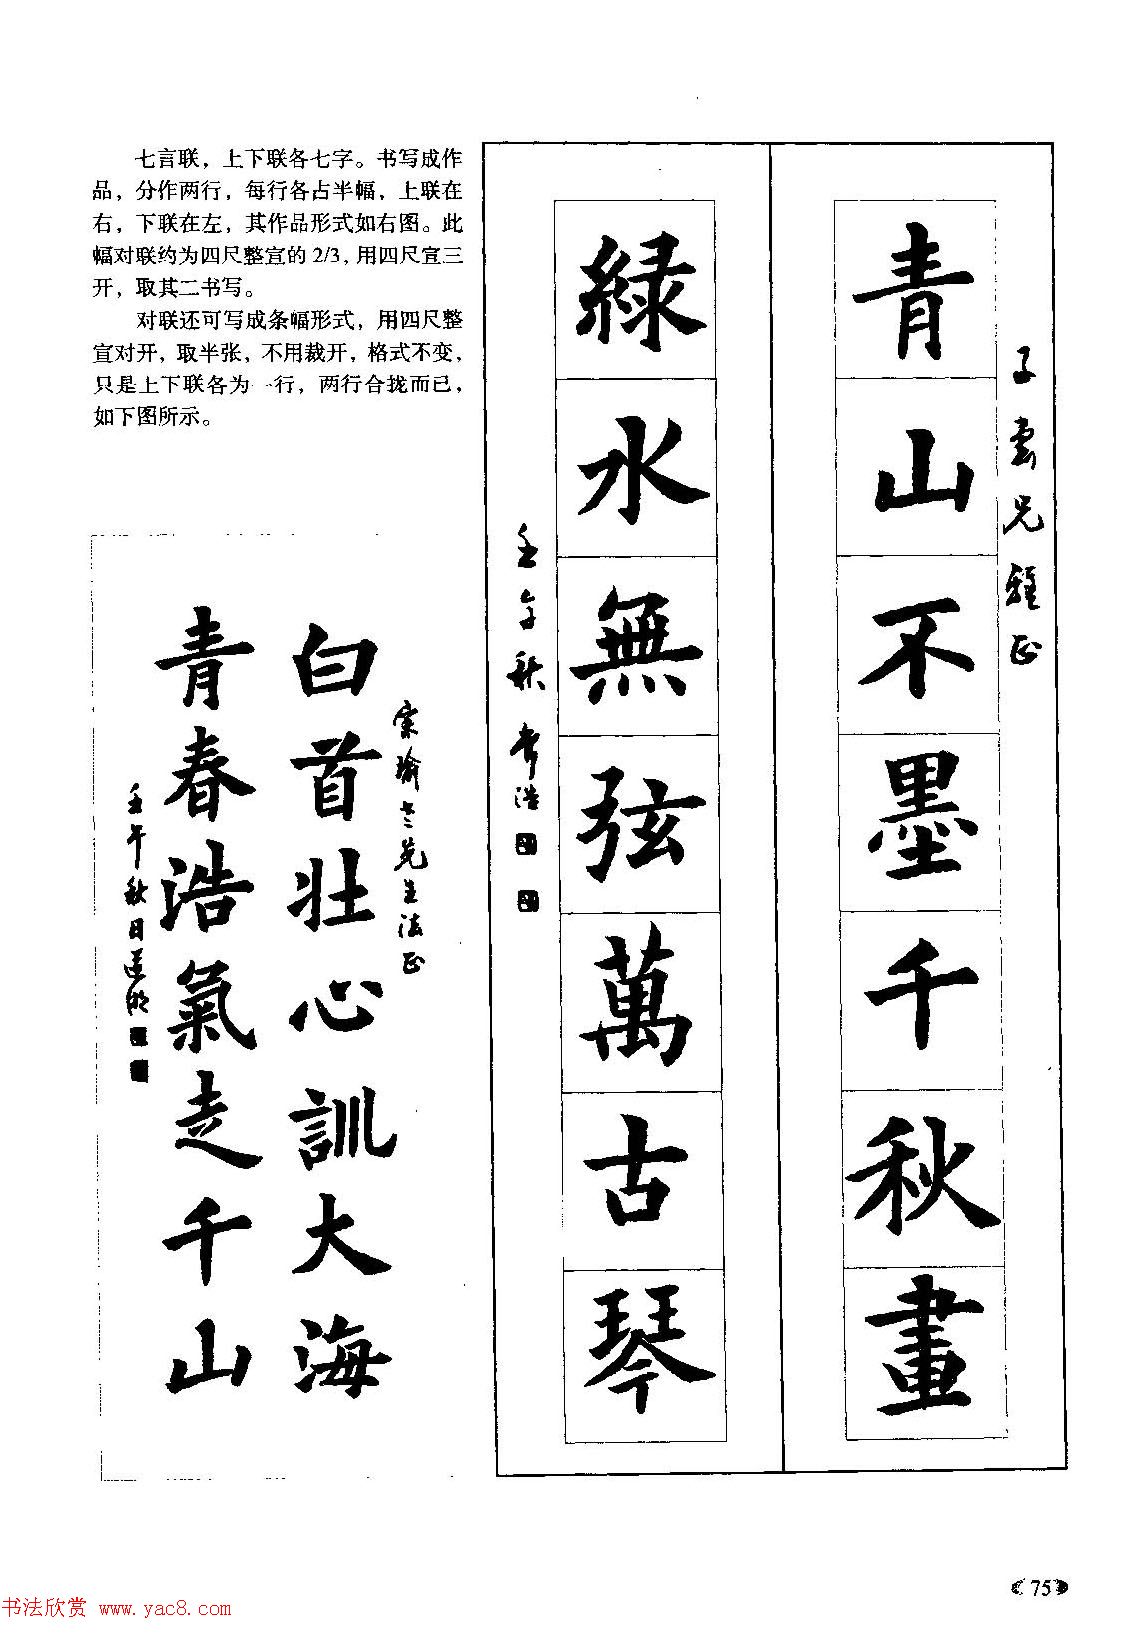 七言联，上下联各七字。书写成作
品，分作两行，每行各占半幅，上联在
右，下联在左，其作品形式如右图。此
幅对联约为四尺整宣的 2/3，用四尺宣三
开，取其二书写。
对联还可写成条幅形式，用四尺整
宣对开，取半张，不用裁开，格式不变，
只是上下联各为一行，两行合拢而已，
如下图所示。
子雲兄雅正
青山不墨千秋畫
綠水無弦萬古琴
壬午秋
浩
宗瑜老先生法正
白首壮心訓大海
青春浩氣走千山
壬午秋日
75
书法欣赏 www.yac8.com